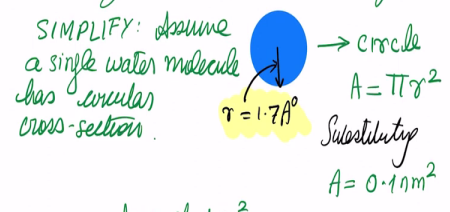 SIMPLIFY: Assume
a single water molecule
has circular
cross-section.
r = 1.7A°
→ circle
A = πr²
Substituting
A = 0.1nm²
2